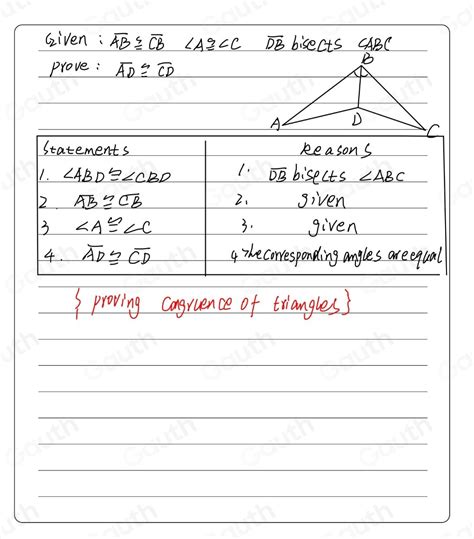 Given : AB ≅ CB ∠A ≅ ∠C DB bisects ∠ABC
prove : AD ≅ CD
B
A
D
C
Statements Reasons
1. ∠ABD ≅ ∠CBD 1. DB bisects ∠ABC
2. AB ≅ CB 2. given
3 ∠A ≅ ∠C 3. given
4. AD ≅ CD 4 The corresponding angles are equal
{ proving congruence of triangles}
Gauth